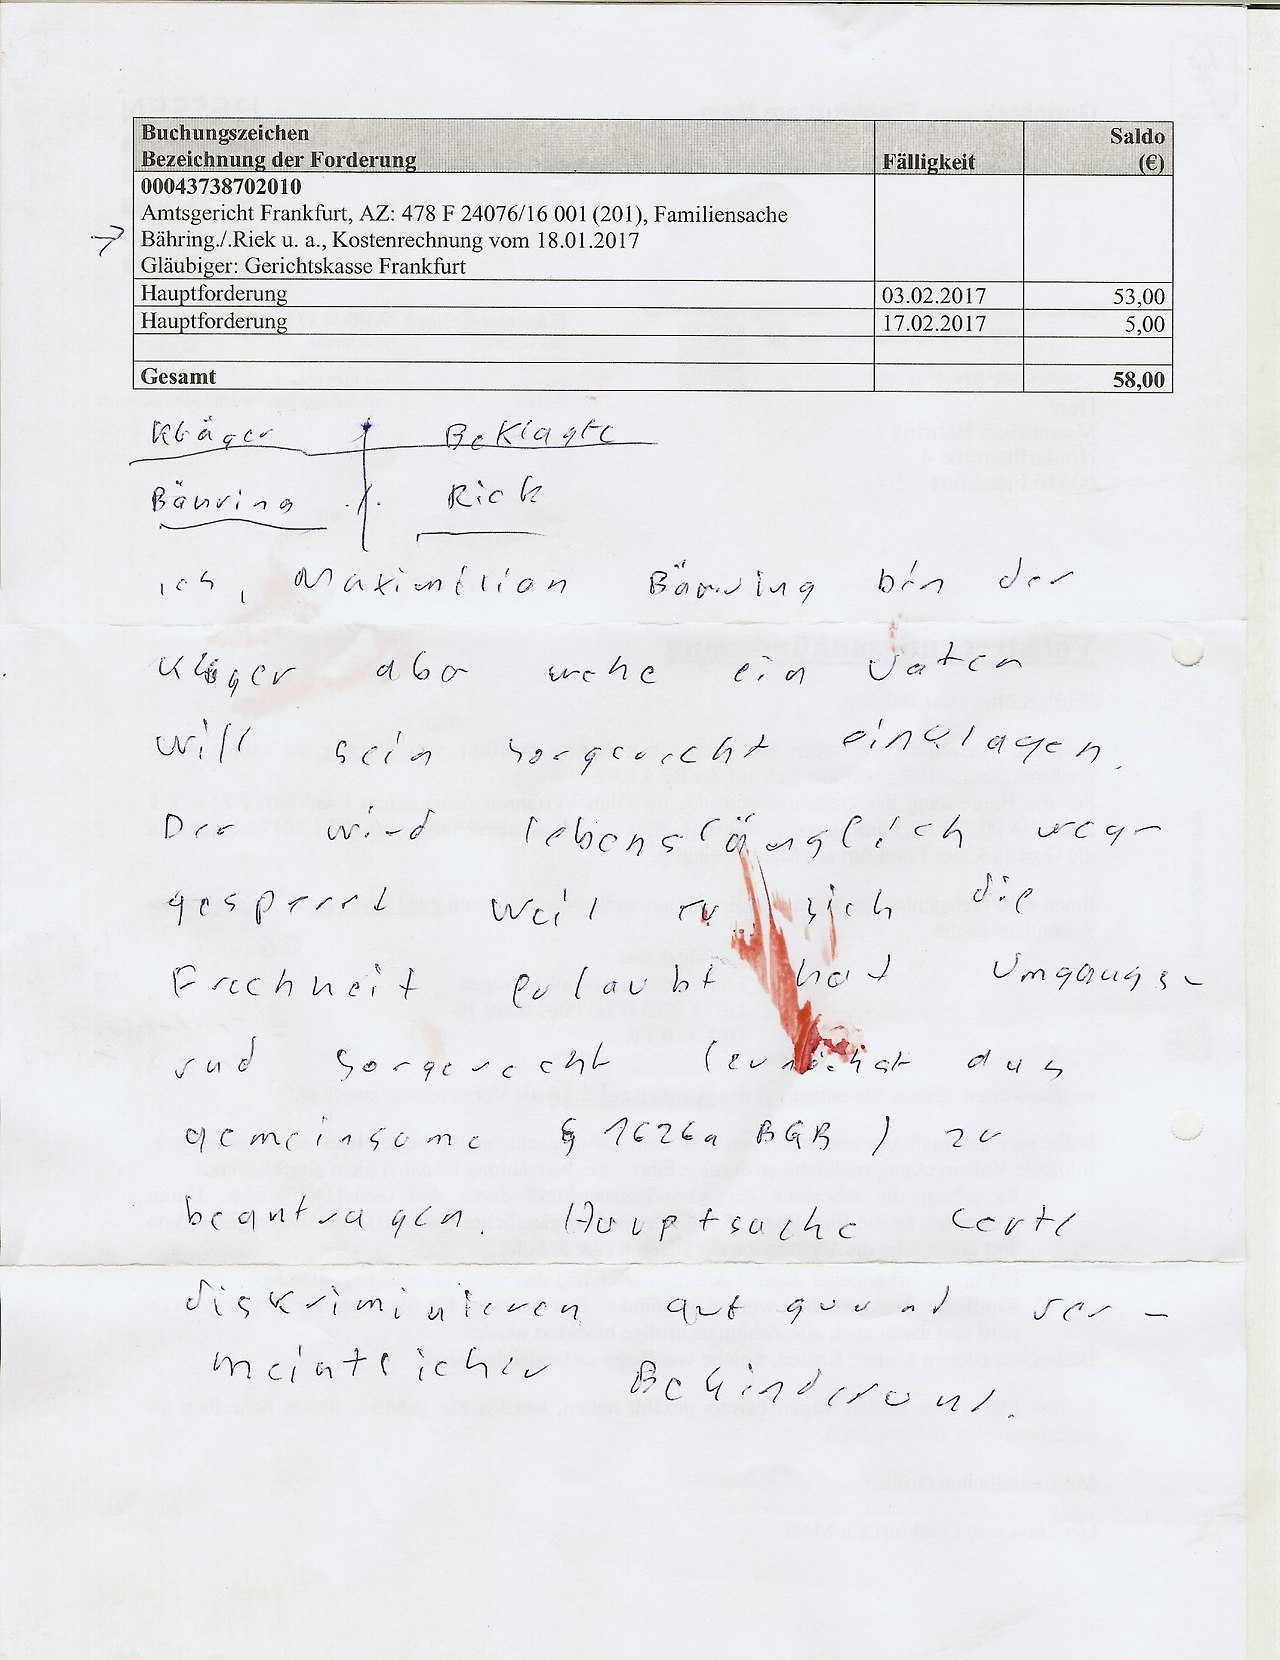 Buchungszeichen
Bezeichnung der Forderung Fälligkeit Saldo (€)
00043738702010
Amtsgericht Frankfurt, AZ: 478 F 24076/16 001 (201), Familiensache
Bähring./.Riek u. a., Kostenrechnung vom 18.01.2017
Gläubiger: Gerichtskasse Frankfurt
Hauptforderung 03.02.2017 53,00
Hauptforderung 17.02.2017 5,00
Gesamt 58,00
Kläger Beklagte
Bähring ./. Riek
ich, Maximilian Bähring bin der
Kläger aber wehe ein Vater
will sein Sorgerecht einklagen.
Der wird lebenslänglich weg-
gesperrt weil er sich die
Frechheit erlaubt hat Umgangs-
und Sorgerecht (zunächst das
gemeinsame § 1626a BGB) zu
beantragen. Hauptsache Leute
diskriminieren aufgrund ver-
meintlicher Behinderung.